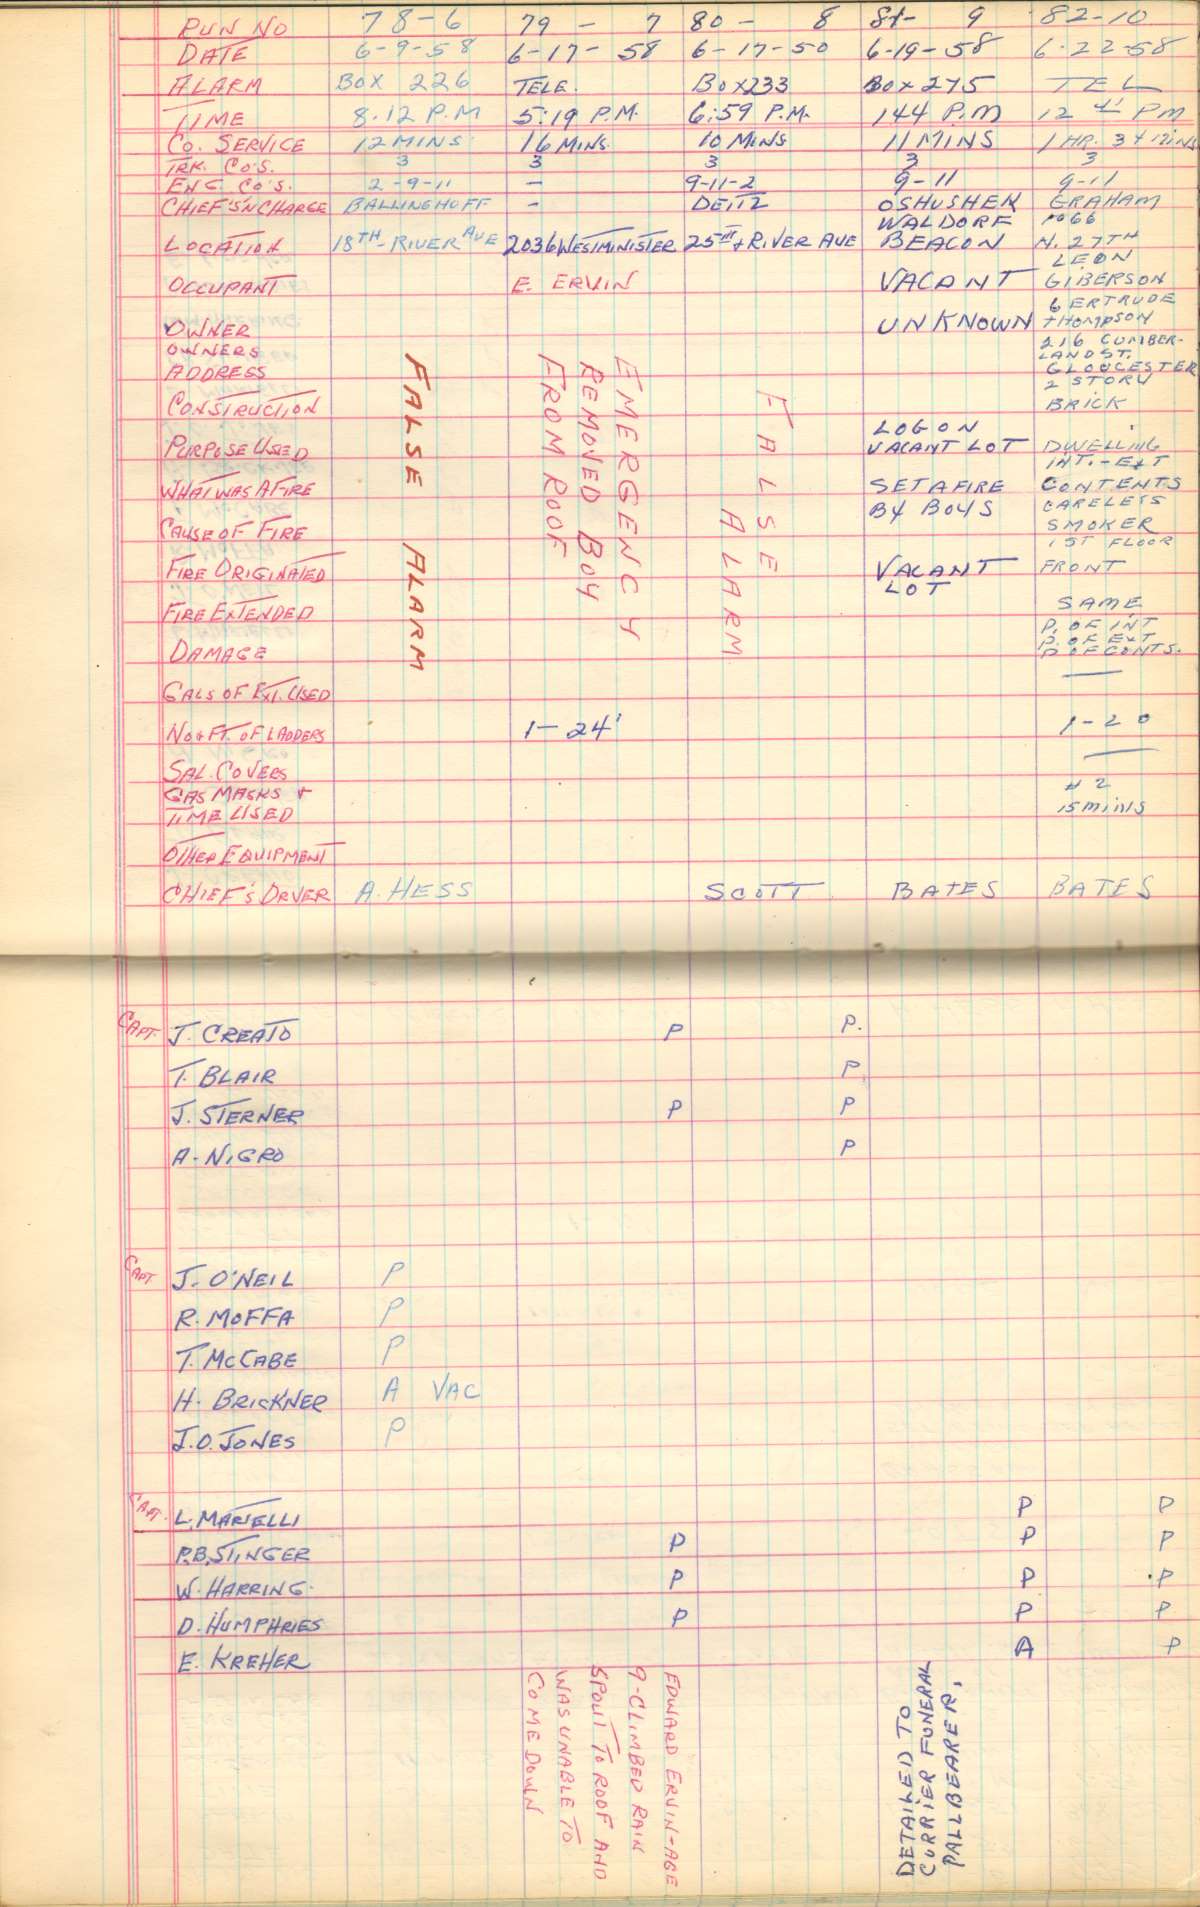 RUN NO 78-6 79 - 7 80 - 8 81- 9 82-10
DATE 6-9-58 6-17-58 6-17-50 6-19-58 6-22-58
ALARM BOX 226 TELE. BOX233 BOX 275 TEL
TIME 8.12 P.M 5:19 P.M. 6:59 P.M. 144 P.M 12 41 PM
CO. SERVICE 12 MINS. 16 MINS. 10 MINS 11 MINS 1 HR. 34 MINS
TRK. CO'S. 3 3 3 3 3
ENG. CO'S. 2-9-11 - 9-11-2 9-11 9-11
CHIEF'S N CHARGE BALLINGHOFF - DEITZ OSHUSHEK GRAHAM
LOCATION 18TH-RIVER AVE 2036 WESTMINISTER 25TH & RIVER AVE WALDORF
BEACON
1066
N. 27TH
OCCUPANT E. ERVIN VACANT LEON
GIBERSON
OWNER UNKNOWN GERTRUDE
THOMPSON
OWNERS
ADDRESS 216 CUMBER-
LAND ST.
GLOUCESTER
CONSTRUCTION 2 STORY
BRICK
PURPOSE USED DWELLING
WHAT WAS AFIRE LOG ON
VACANT LOT INT.-EXT
CONTENTS
CAUSE OF FIRE SET AFIRE
BY BOYS CARELESS
SMOKER
FIRE ORIGINATED VACANT
LOT 1ST FLOOR
FRONT
FIRE EXTENDED SAME
DAMAGE P. OF INT
P. OF EXT
P OF CONTS.
GALS OF EXT. USED —
NO & FT. OF LADDERS 1- 24' 1-20
SAL. COVERS —
GAS MASKS +
TIME USED # 2
15 mins
OTHER EQUIPMENT
CHIEF'S DRVER A. HESS SCOTT BATES BATES
FALSE ALARM
EMERGENCY
REMOVED BOY
FROM ROOF
FALSE
ALARM
CAPT. J. CREATO P P.
T. BLAIR P
J. STERNER P P
A. NIGRO P
CAPT J. O'NEIL P
R. MOFFA P
T. MCCABE P
H. BRICKNER A VAC
J.O. JONES P
CAPT. L. MARTELLI P P
P.B. STINGER P P P
W. HARRING. P P P
D. HUMPHRIES P P P
E. KREHER A P
EDWARD ERVIN-AGE
9-CLIMBED RAIN
SPOUT TO ROOF AND
WAS UNABLE TO
COME DOWN
DETAILED TO
CURRIER FUNERAL
PALLBEARER.